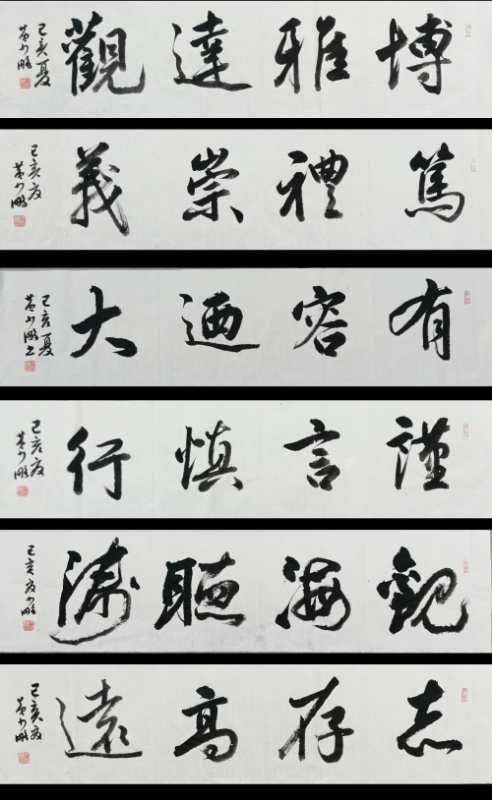 博雅達觀
己亥夏
篤禮崇義
己亥夏
有容迺大
己亥夏
謹言慎行
己亥夏
觀海聽濤
己亥夏
志存高遠
己亥夏